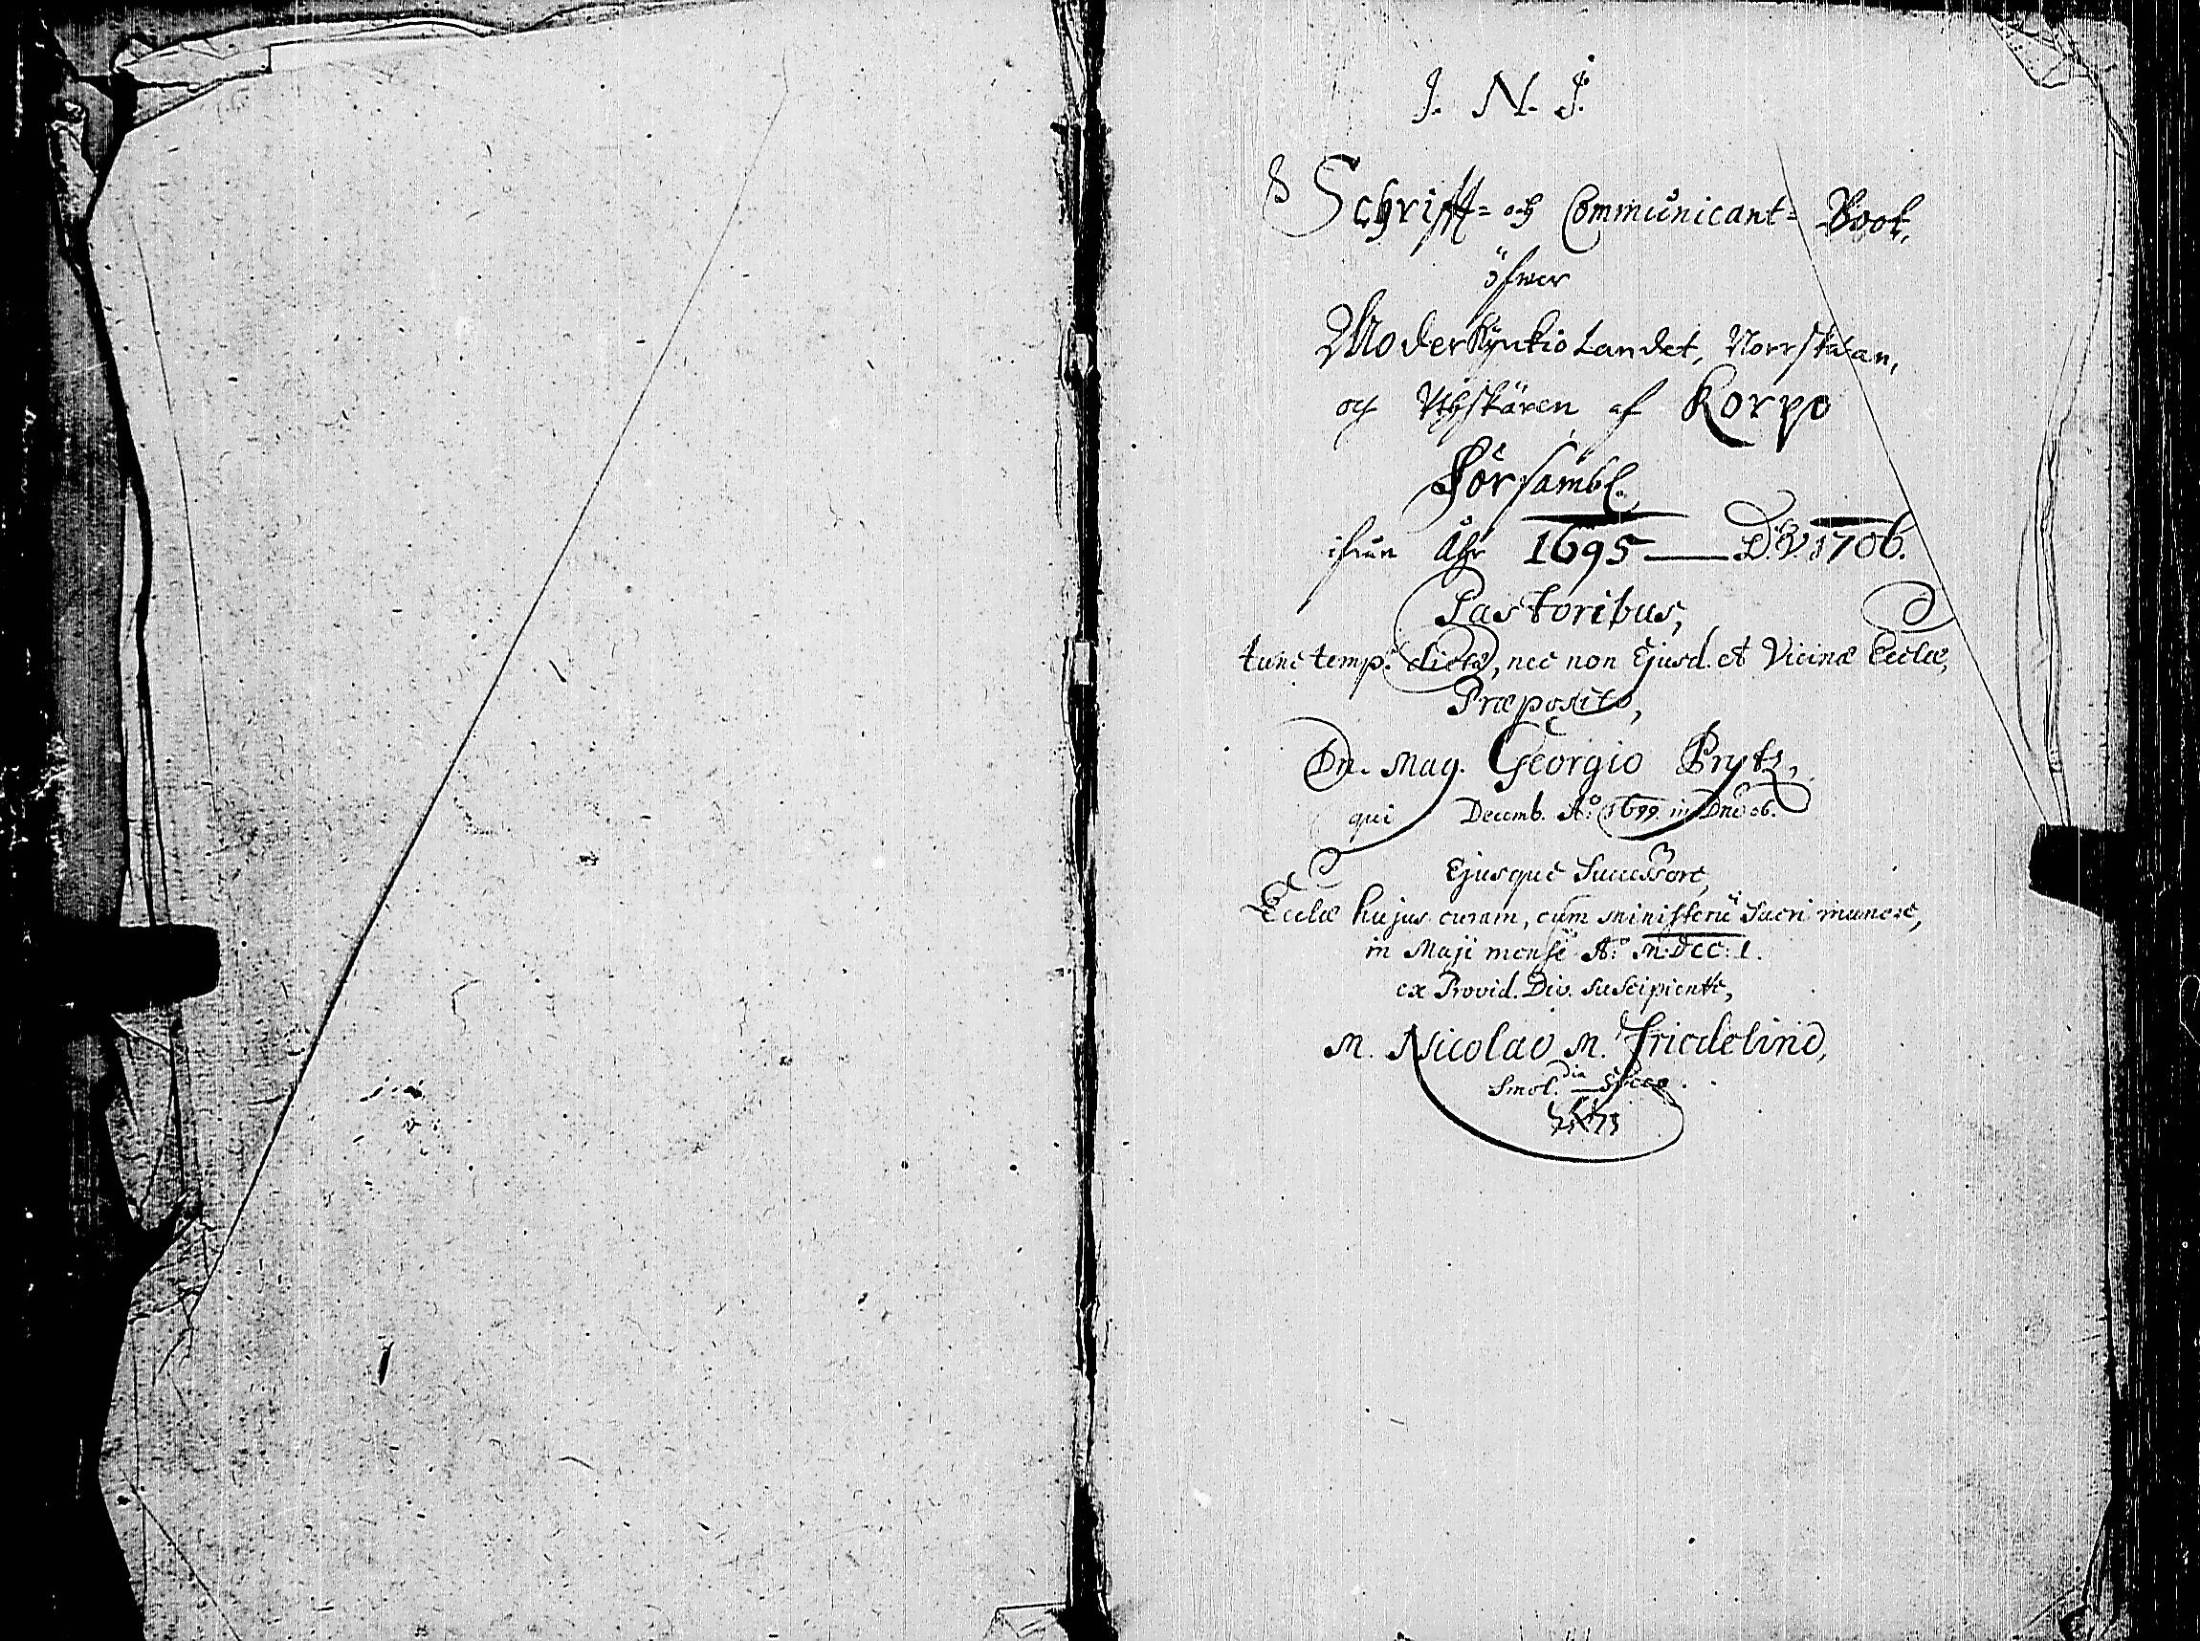 J. N. J.
Schrifft= och Communicant= Book,
öfwer
Moderkyrkio Landet, Norrskaan,
och Uthskären af Korpo
Försambl.
ifrån Åhr 1695 — D.V. 1706.
Pastoribus,
tunc temp. dictæ, nec non Ejusd. et Vicinæ Eccles,
Præposito,
Dn. Mag. Georgio Prytz,
qui Decemb. Ao. 1699. in Dno ob.
Ejusque Successore,
Eccliæ hujus curam, cum ministerii Sacri munere,
in Maji mense Ao. M:DCC:I.
ex Provid. Div. suscipiente,
M. Nicolao M. Friedelino,
Smol.